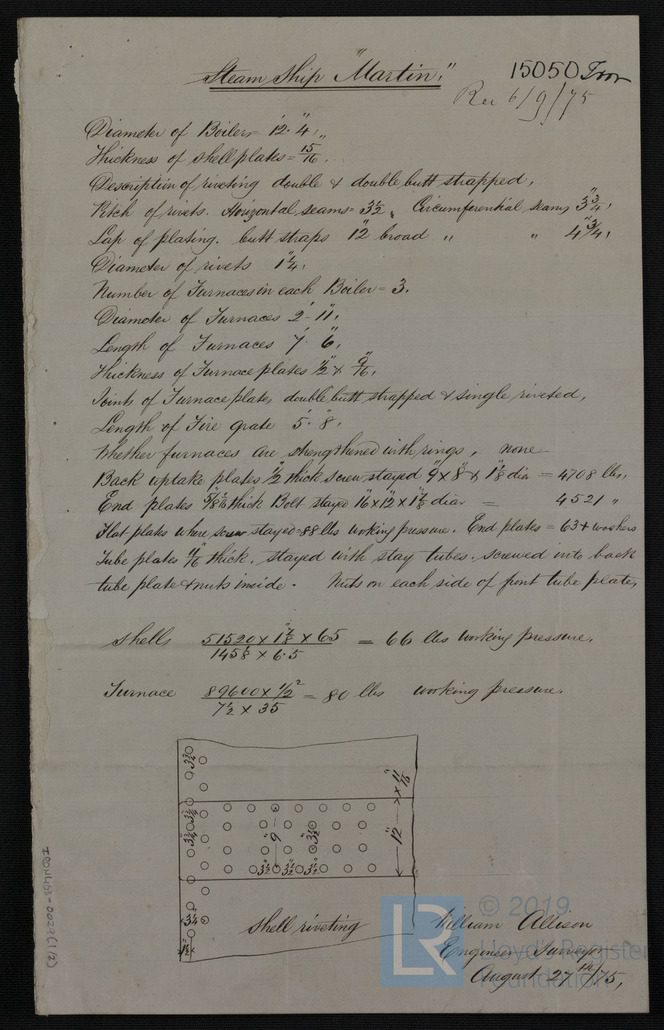 Steam Ship "Martin."
15050 Iron
Rec 6/9/75
Diameter of Boiler = 12'. 4",
Thickness of shell plates = 15/16".
Description of riveting double & double butt strapped,
Pitch of rivets. Horizontal seams = 3 1/2", Circumferential seams 3 3/4",
Lap of plating. butt straps 12" broad " " 4 3/4",
Diameter of rivets 1 1/4",
Number of Furnaces in each Boiler = 3.
Diameter of Furnaces 2'- 11",
Length of Furnaces 7' 6",
Thickness of Furnace plates 1/2" & 9/16",
Joints of Furnace plates double butt strapped & single riveted,
Length of Fire grate 5'. 8",
Whether furnaces are strengthened with rings, none
Back uptake plates 1/2" thick screw stayed 9" x 8" & 1 1/8" dia = 4708 lbs,
End plates thick Bolt stayed 16" x 12" x 1 7/8" dia = 4521 "
Flat plates where screw stayed = 88 lbs working pressure. End plates = 63 +
Tube plates 11/16" thick. stayed with stay tubes. screwed into back
tube plate & nuts inside. Nuts on each side of front tube plate,
Shells 51520 x 1 7/8" x 65 = 66 lbs working pressure,
145 1/8 x 6.5
Furnace 89600 x 1/2² = 80 lbs working pressure.
7 1/2 x 35
3 3/4
3 3/4
3 3/4
9"
3 1/2
12"
x 11/16
3 1/2 3 1/2 3 1/2
3 3/4
1 7/8
Shell riveting
William Allison
Engineer Surveyor
August 27th/75,
IRON463-0028(1/2)
LR
© 2019
Lloyd's Register
Foundation